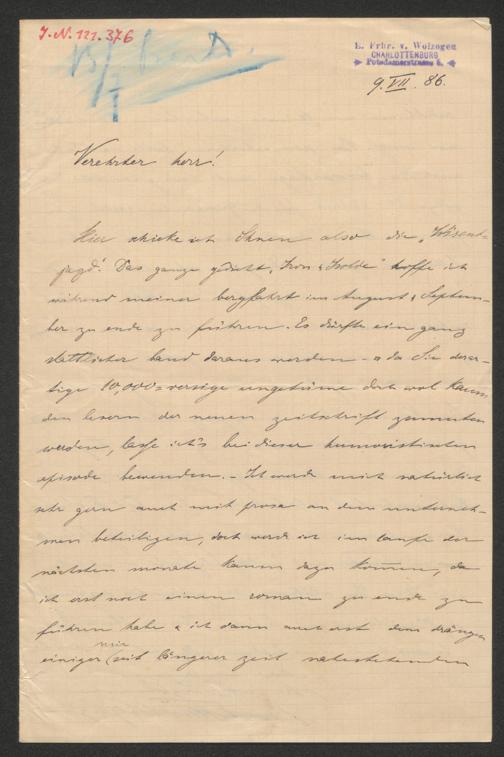 J.N. 122.376
E. Frhr. v. Wolzogen
CHARLOTTENBURG
Potsdamerstrasse 8.
9. VII. 86.
Verehrter herr!
Hier schicke ich Ihnen also die „Wisent-
jagd“. Das ganze gedicht „Iron & Isolde“ hoffe ich
während meiner bergfahrt im August & Septem-
ber zu ende zu führen. Es dürfte ein ganz
stattlicher band daraus werden – & da Sie derar-
tige 10,000=versige ungetüme doch wol kaum
den lesern der neuen zeitschrift zumuten
werden, lasse ich's bei dieser humoristischen
episode bewenden. – Ich werde mich natürlich
sehr gern auch mit prosa an dem unterneh-
men beteiligen, doch werde ich im laufe der
nächsten monate kaum dazu kommen, da
ich erst noch einen roman zu ende zu
führen habe & ich dann auch erst dem drängen
einiger (mir seit längerer zeit nahestehenden